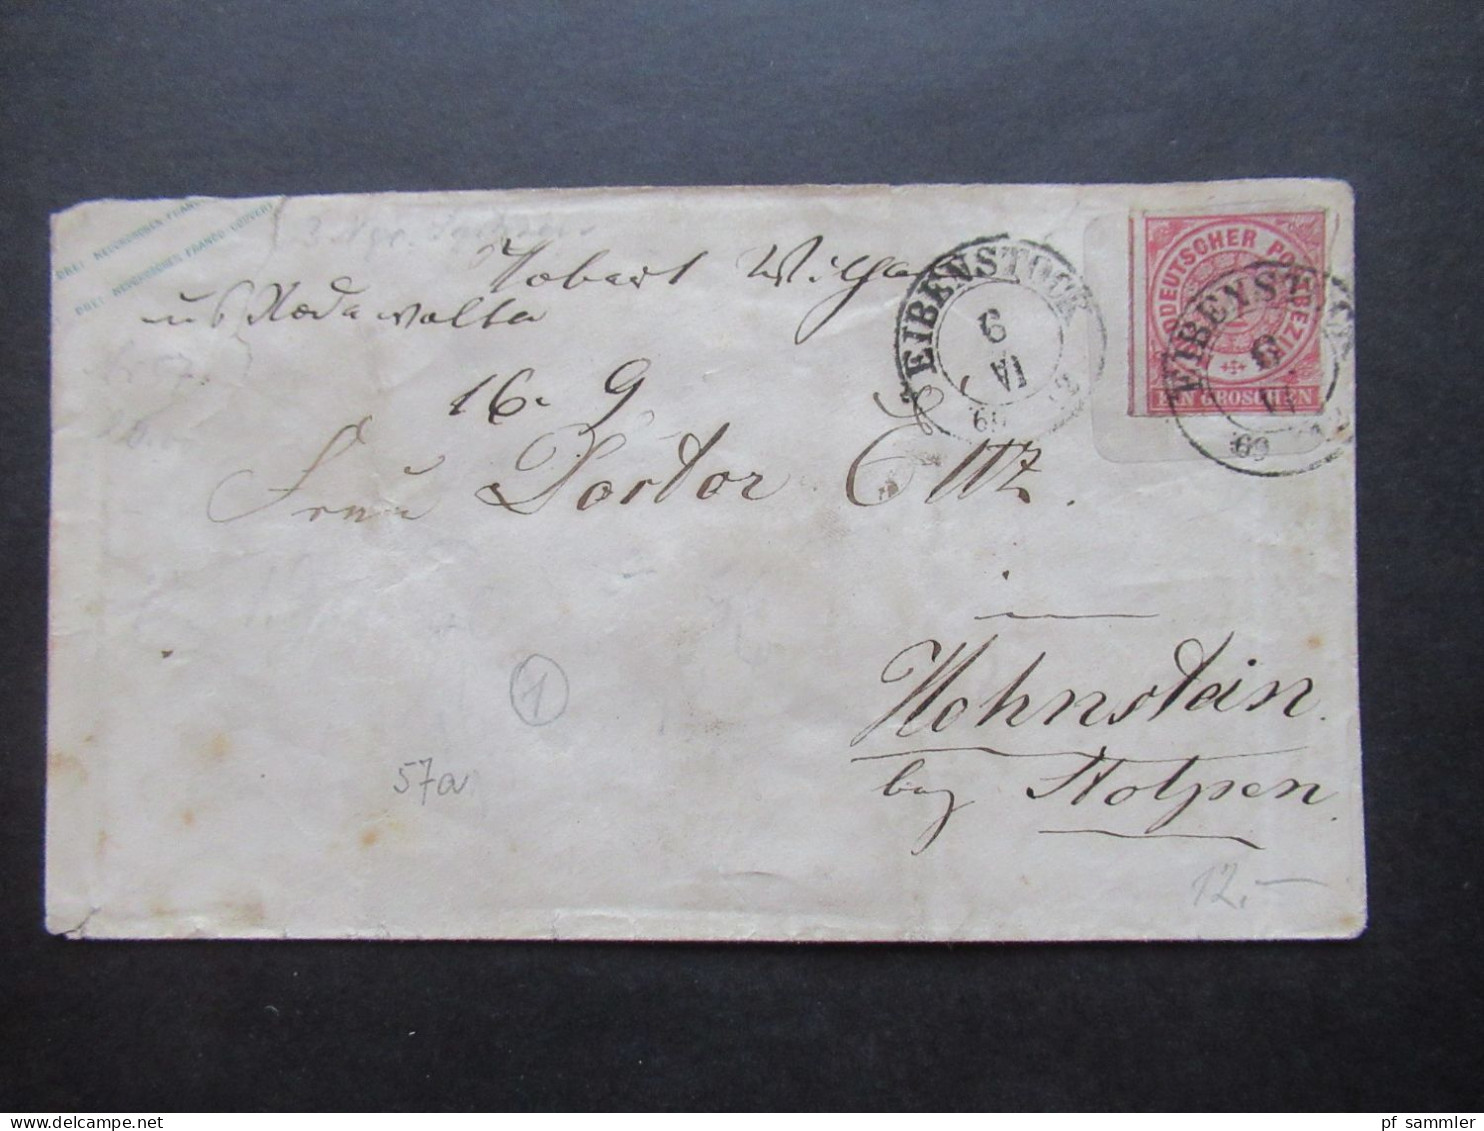 DREI NEUGROSCHEN FRANCO
DREI NEUGROSCHEN FRANCO-COUVERT
3 Ngr. Sachsen
Robert Wilh
EIBENSTOCK
9
VI
69
NORDDEUTSCHER POSTBEZIRK
EIN GROSCHEN
EIBENSTOCK
9
VI
69
16. 9
Frau Doctor Ettz.
in
Hohnstein.
bey Stolpen.
1
57a
12.-
pf sammler - delcampe.net